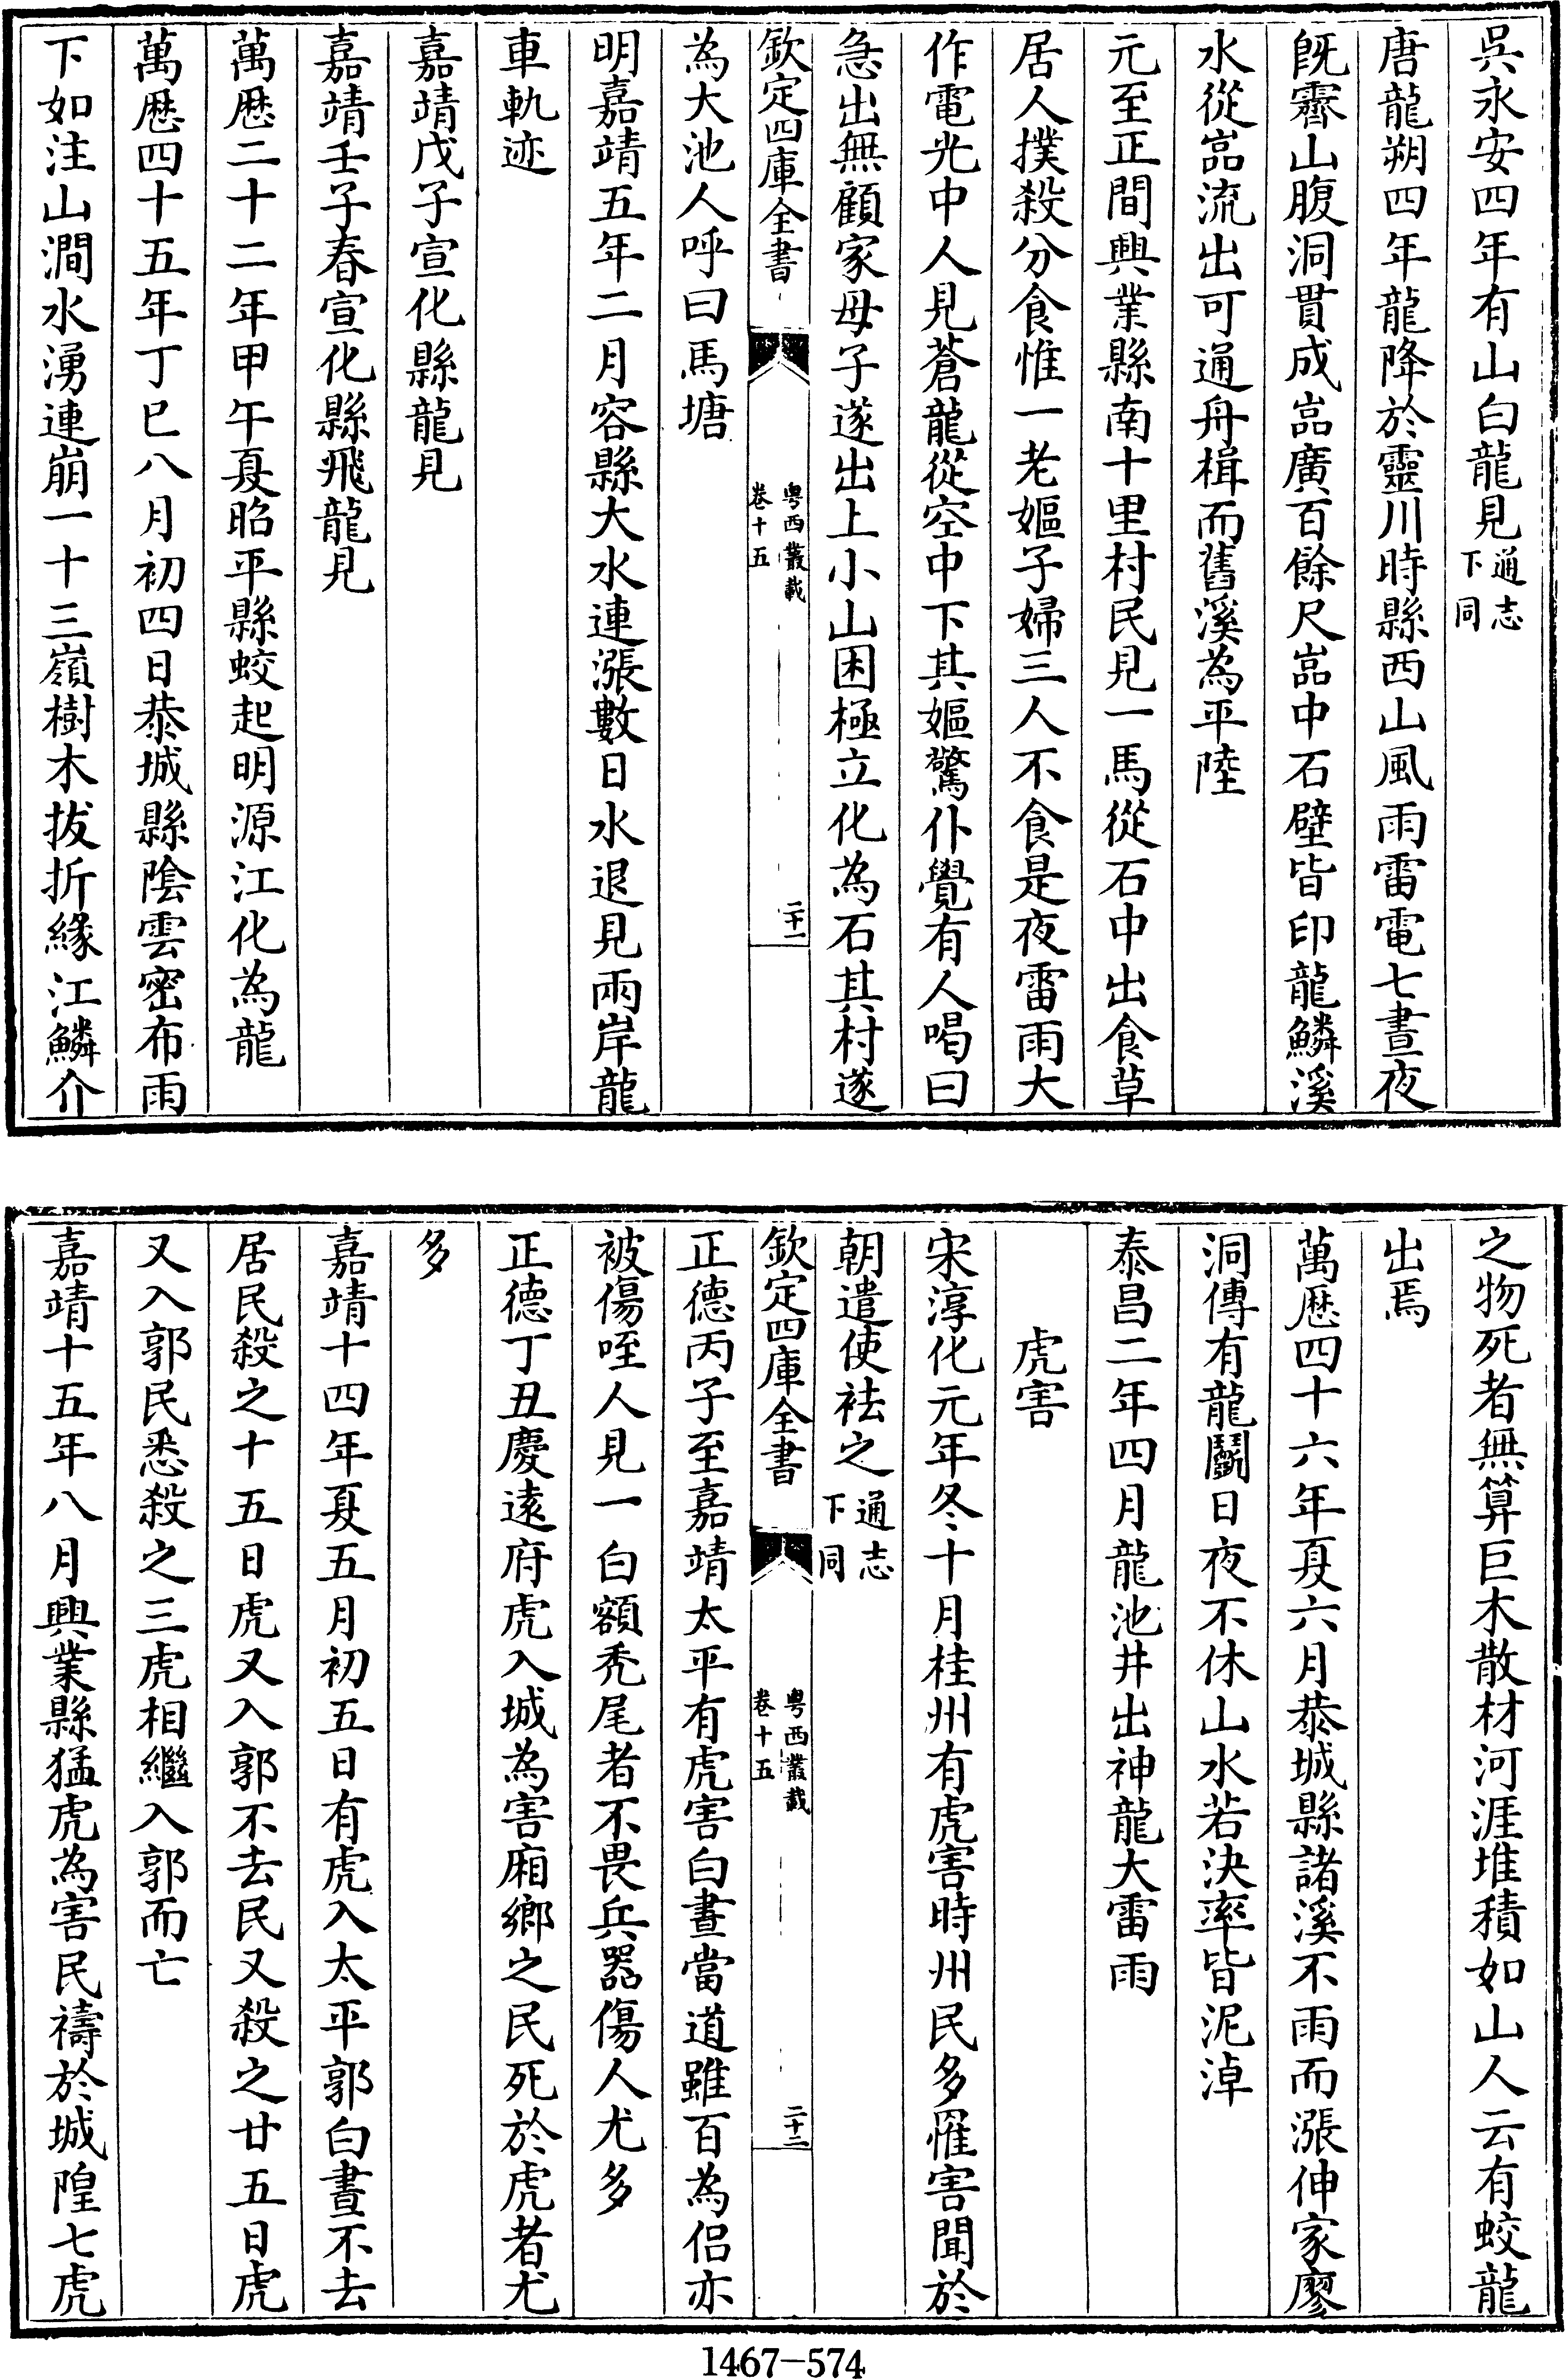 吳永安四年有山白龍見通志下同
唐龍朔四年龍降於靈川時縣西山風雨雷電七晝夜
旣霽山腹洞貫成嵓廣百餘尺嵓中石壁皆印龍鱗溪
水從嵓流出可通舟楫而舊溪為平陸
元至正間興業縣南十里村民見一馬從石中出食草
居人撲殺分食惟一老嫗子婦三人不食是夜雷雨大
作電光中人見蒼龍從空中下其嫗驚仆覺有人喝曰
急出無顧家母子遂出上小山困極立化為石其村遂
欽定四庫全書
粵西叢載
卷十五
二十一
為大池人呼曰馬塘
明嘉靖五年二月容縣大水連漲數日水退見兩岸龍
車軌迹
嘉靖戊子宣化縣龍見
嘉靖壬子春宣化縣飛龍見
萬歷二十二年甲午夏昭平縣蛟起明源江化為龍
萬歷四十五年丁巳八月初四日恭城縣陰雲密布雨
下如注山澗水湧連崩一十三嶺樹木拔折緣江鱗介
之物死者無算巨木散材河涯堆積如山人云有蛟龍
出焉
萬歷四十六年夏六月恭城縣諸溪不雨而漲伸家廖
洞傳有龍鬭日夜不休山水若決率皆泥淖
泰昌二年四月龍池井出神龍大雷雨
虎害
宋淳化元年冬十月桂州有虎害時州民多罹害聞於
朝遣使袪之通志下同
欽定四庫全書
粵西叢載
卷十五
二十二
正德丙子至嘉靖太平有虎害白晝當道雖百為侣亦
被傷咥人見一白額禿尾者不畏兵器傷人尤多
正德丁丑慶逺府虎入城為害廂鄉之民死於虎者尤
多
嘉靖十四年夏五月初五日有虎入太平郭白晝不去
居民殺之十五日虎又入郭不去民又殺之廿五日虎
又入郭民悉殺之三虎相繼入郭而亡
嘉靖十五年八月興業縣猛虎為害民禱於城隍七虎
1467-574